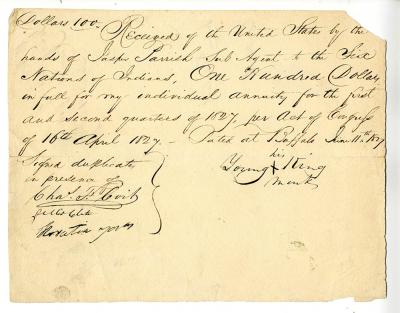 Dollars 100.
Received of the United States by the
hands of Jasper Parrish Sub Agent to the Six
Nations of Indians, One Hundred Dollars
in full for my individual annuity for the first
and second quarters of 1827, per Act of Congress
of 16th April 1827. Dated at Buffalo June 11th 1827
Signed duplicates
in presence of
Chas.
his
Young X King
mark
Horatio Jones